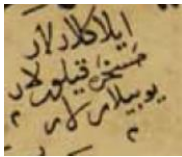 ایلاکلادلار
مسخر قیلورلار
یوبیلارلار